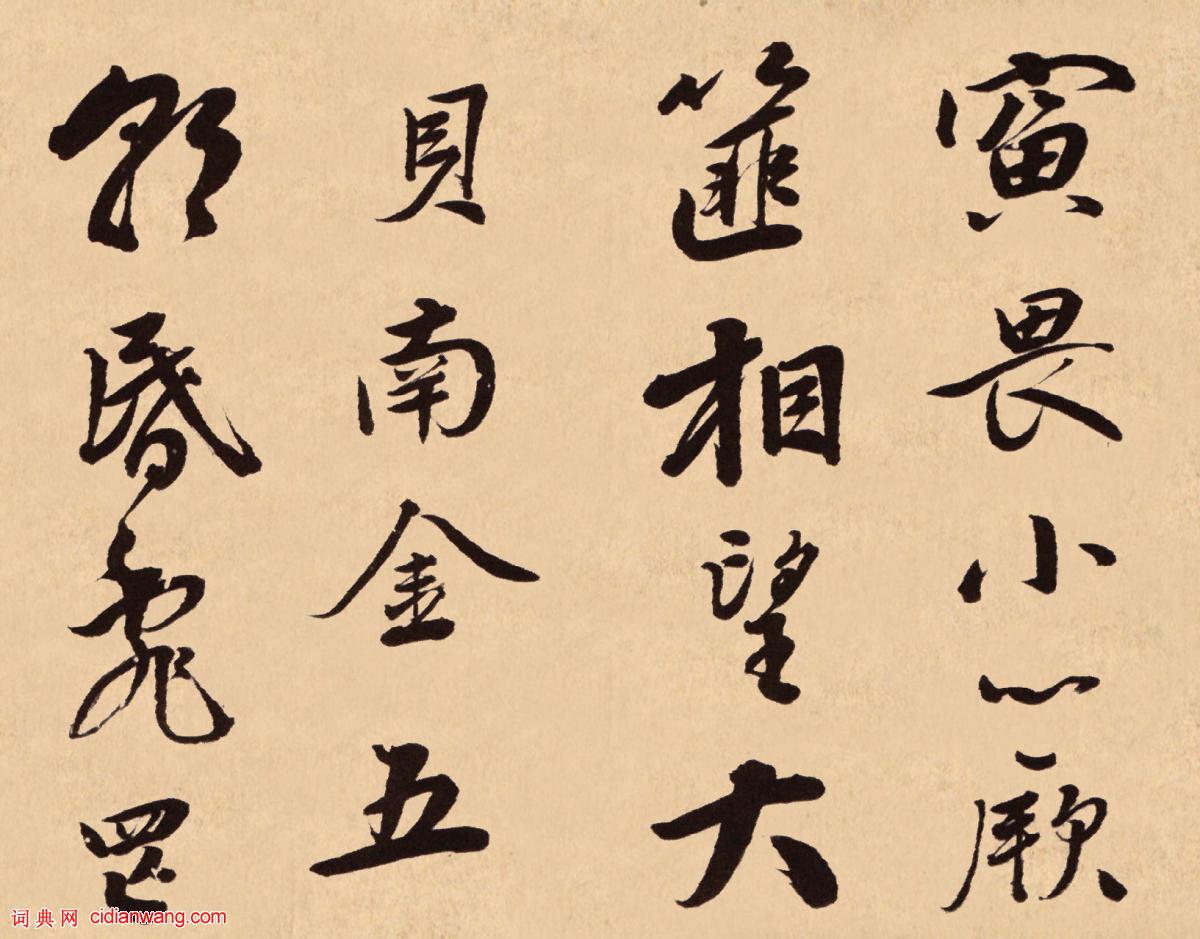 寅畏小心厥
篚相望大
貝南金五
朝昏亂罔
词典网 cidianwang.com